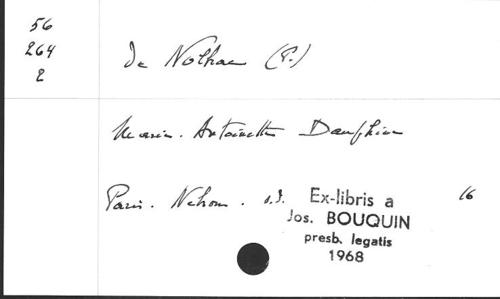 56
264
2
de Nolhac (P.)
Marie-Antoinette Dauphine
Paris. Nelson. s.d. 16
Ex-libris a
Jos. BOUQUIN
presb. legatis
1968